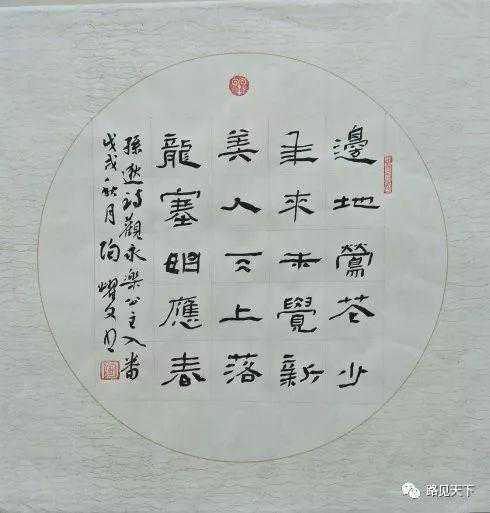 邊地鶯花少
年來未覺新
美人天上落
龍塞始應春
孫逖詩觀永樂公主入蕃
戊戌秋月陶
路见天下